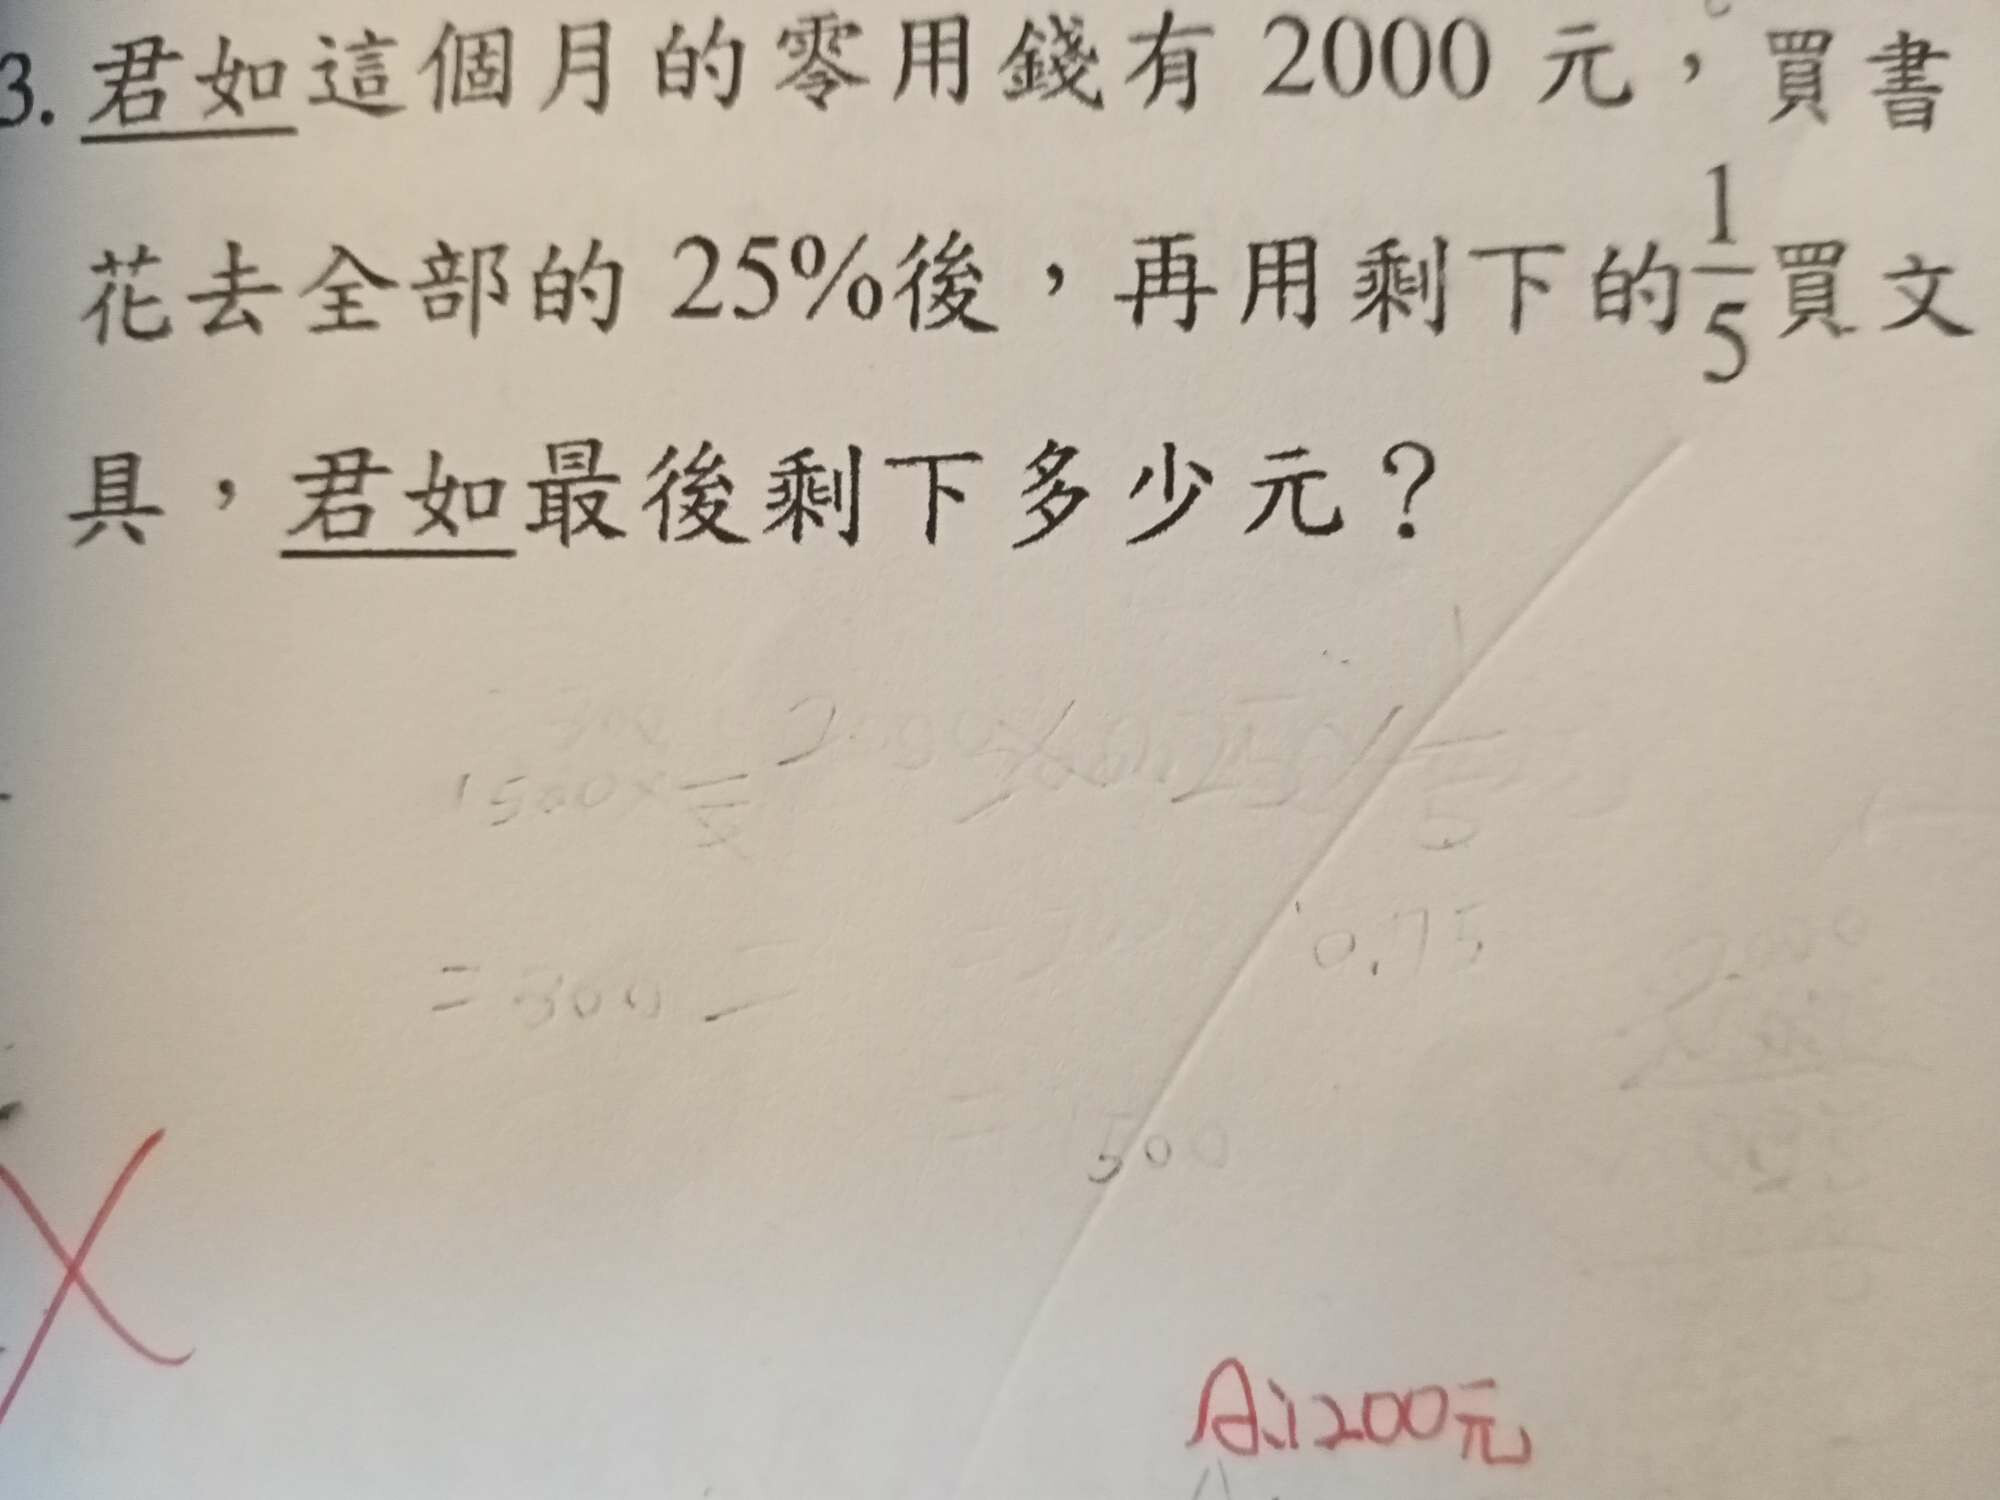 3. 君如這個月的零用錢有 2000 元，買書
花去全部的 25%後，再用剩下的1/5買文
具，君如最後剩下多少元？
1500×
0.75
=300
500
A:1200元